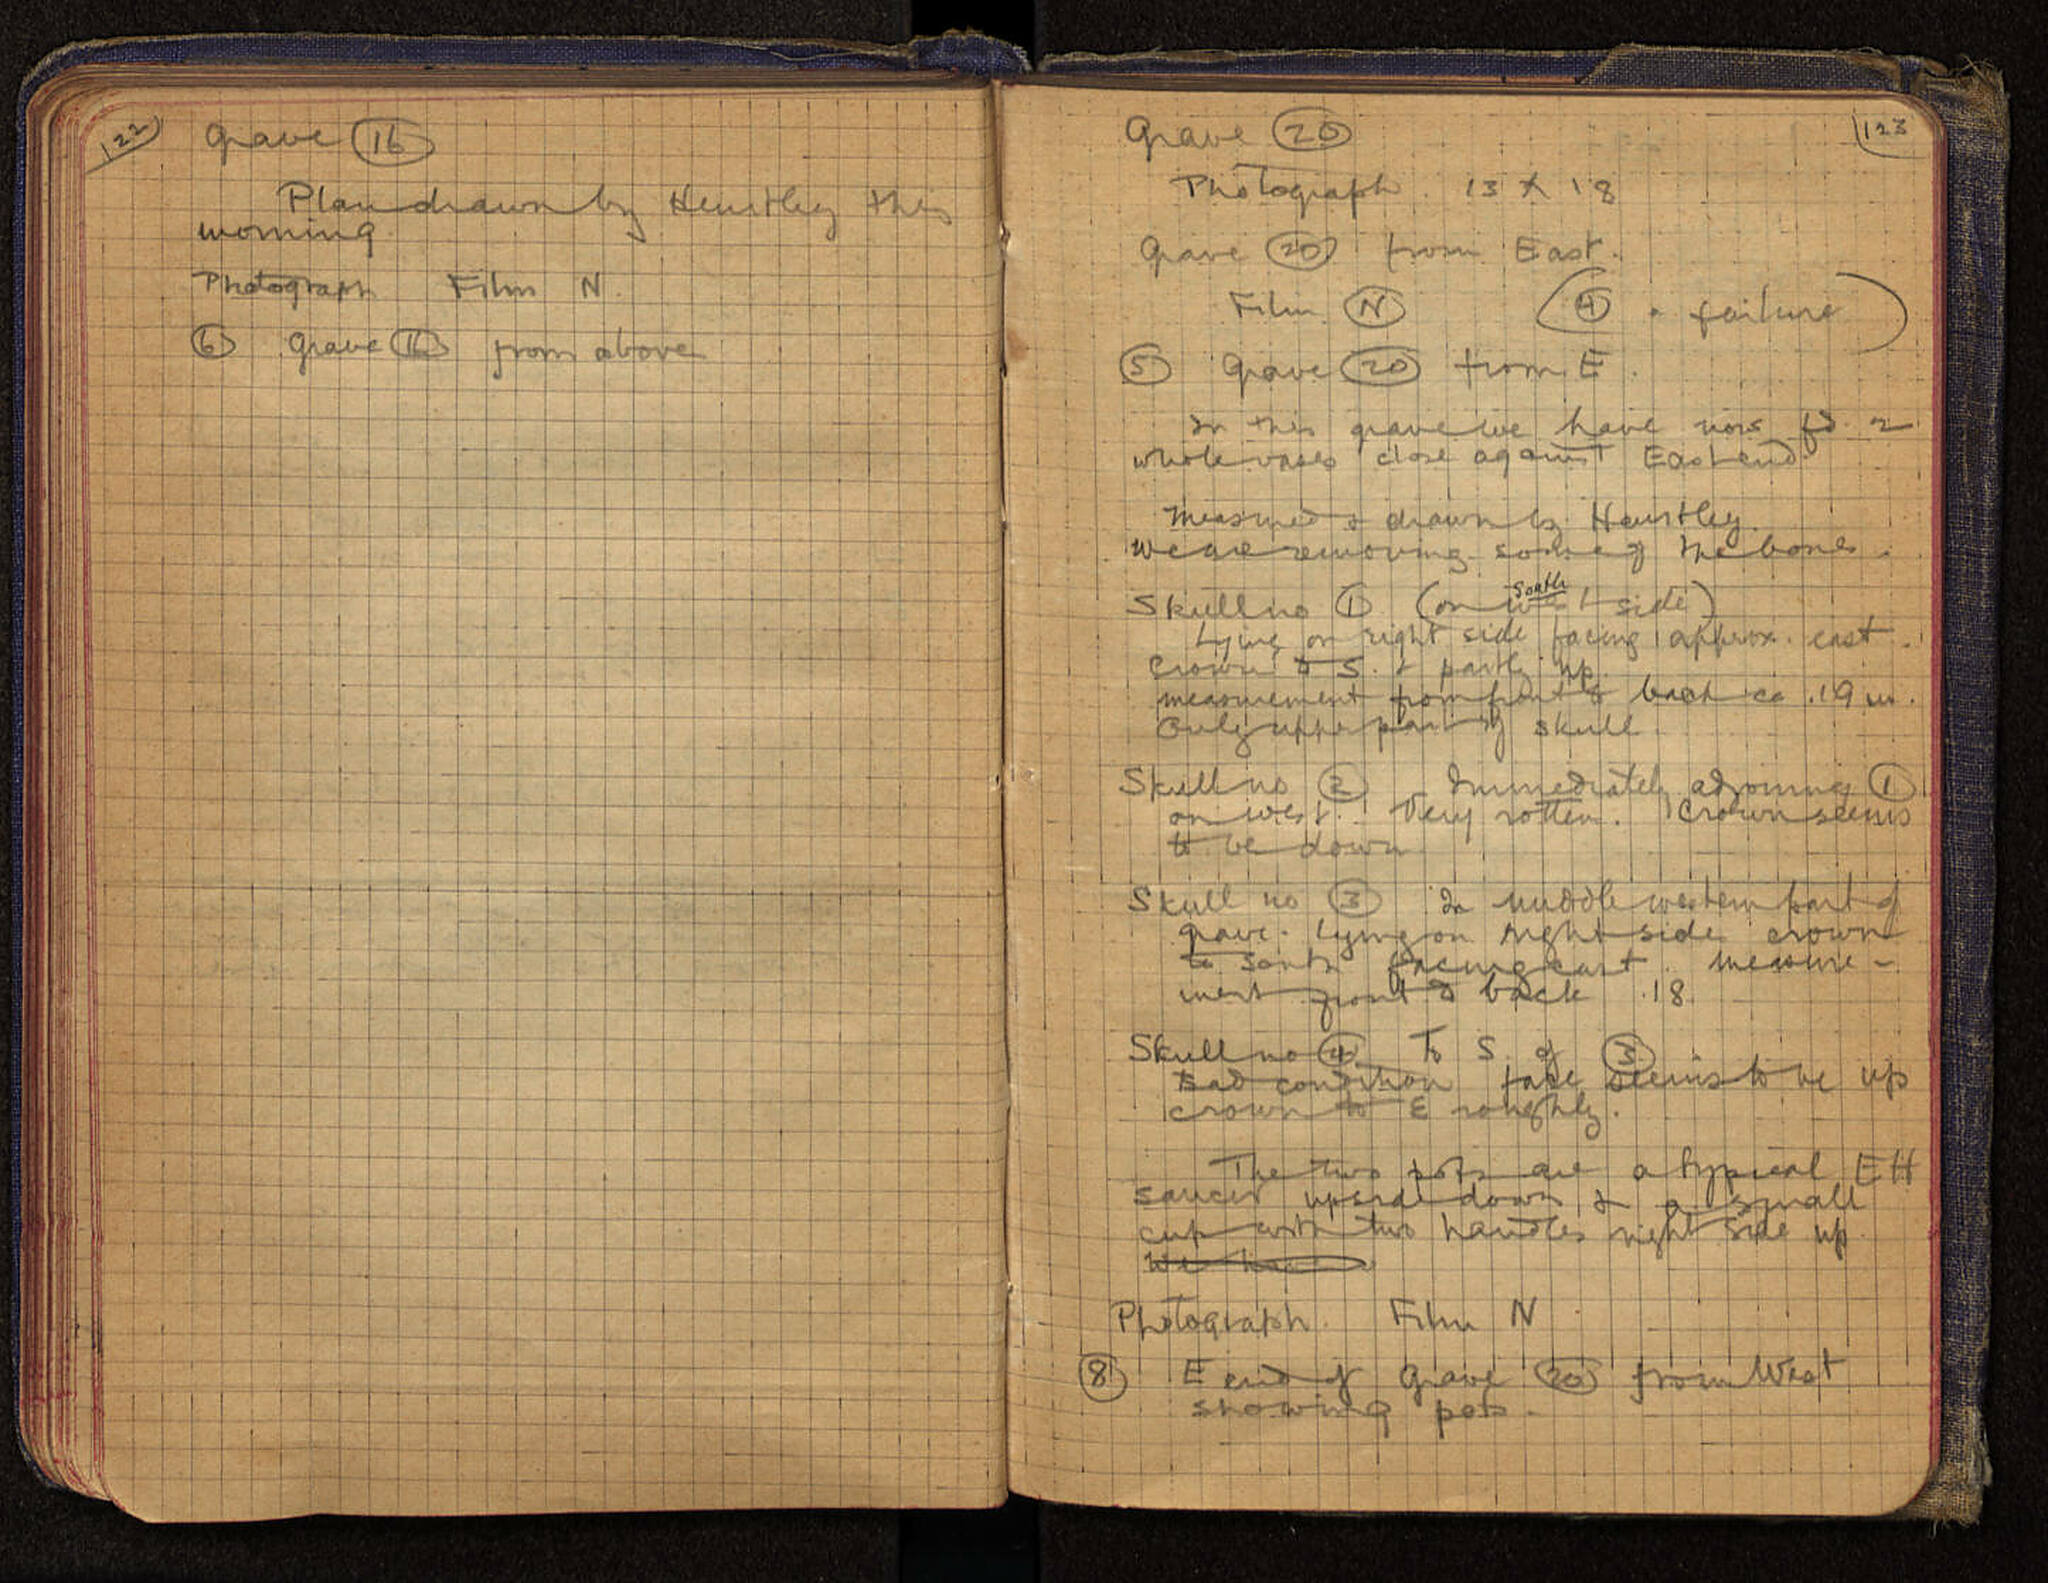 122
Grave 16
Plan drawn by Heurtley this
morning
Photograph Film N.
6 Grave 16 from above
123
Grave 20
Photograph. 13 x 18
Grave 20 from East.
Film N (4 . failure)
5 Grave 20 from E.
In this grave we have now fd. 2
whole vases close against East end.
Measured & drawn by Heurtley.
We are removing some of the bones.
Skull no 1 (on west south side)
Lying on right side facing approx. east.
Crown to S. & partly up.
measurement from front to back ca .19 m.
Only upper part of skull
Skull no 2 Immediately adjoining 1
on west. Very rotten. Crown seems
to be down
Skull no 3 In middle western part of
grave. Lying on right side crown
to south facing east. Measure-
ment front to back .18.
Skull no 4. To S. of 3
Bad condition face seems to be up
crown to E roughly.
The two pots are a typical EH
saucer upside down & a small
cup with two handles right side up.
We have
Photograph. Film N
8 E end of Grave 20 from West
showing pots.